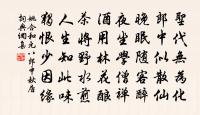 聖代無為化
郎中似散仙
晚眠隨客醉
夜坐學僧禪
酒用林花釀
茶將野水煎
人生知此味
獨恨少因緣
姚合和元八郎中秋居
詞典網集